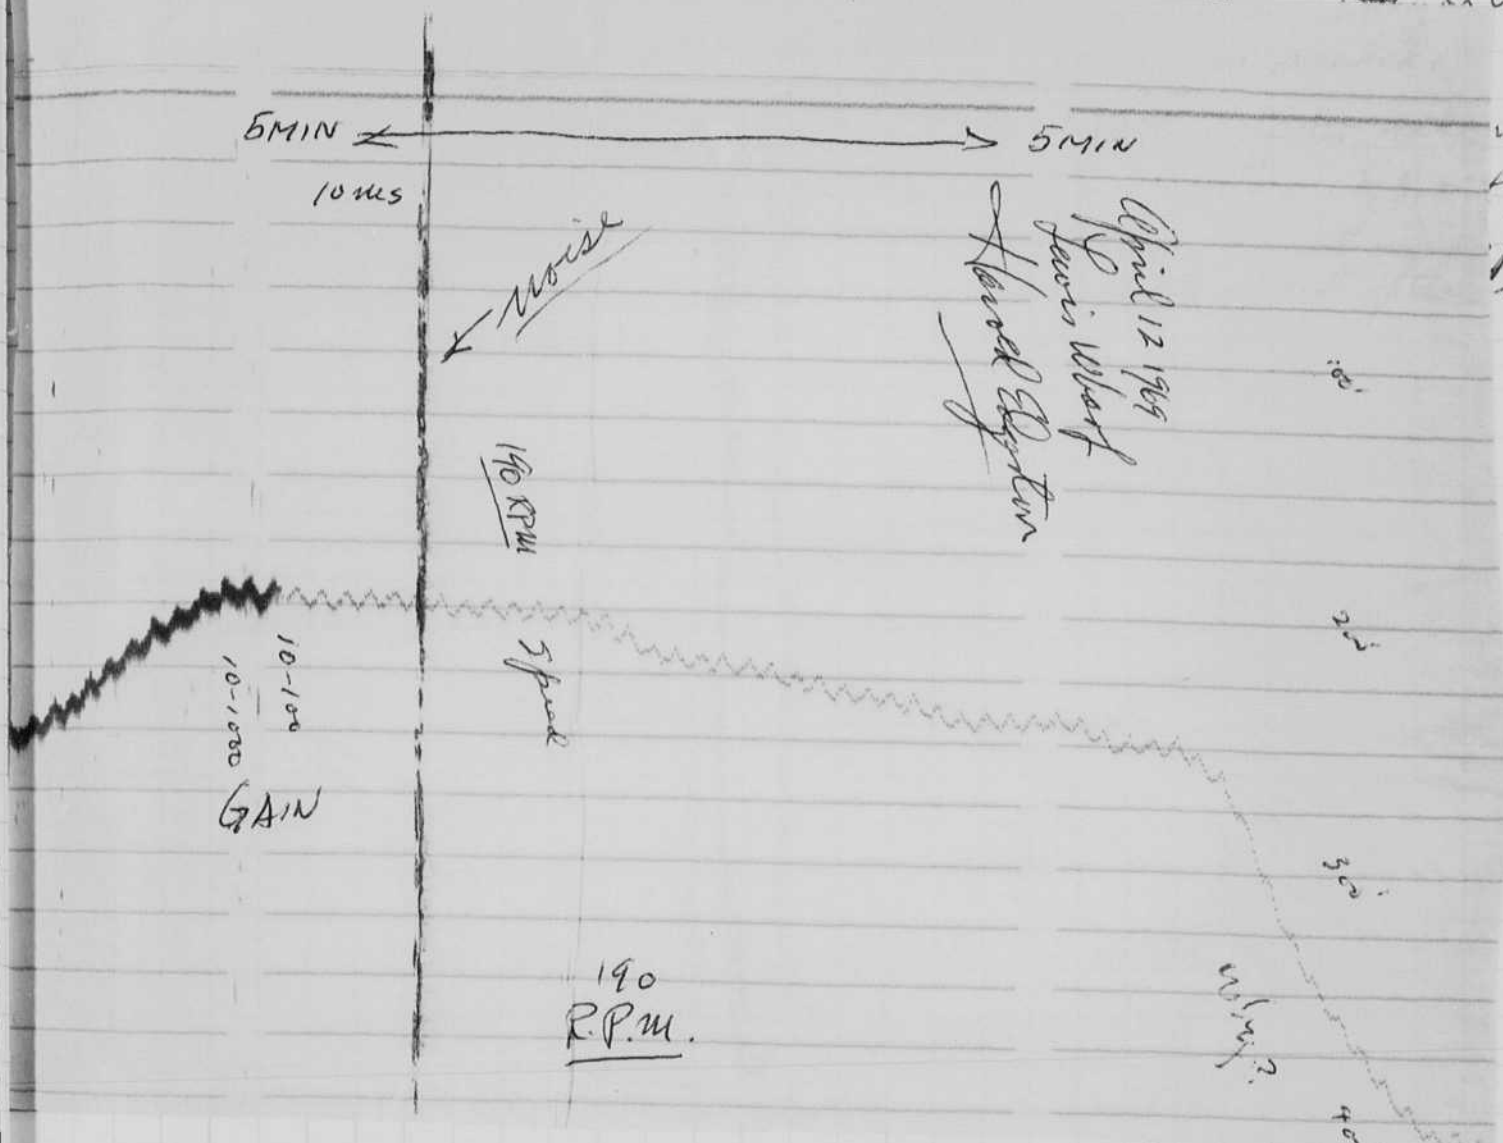 5MIN
5MIN
10 ms
Noise
April 12 1969
Lewis Wharf
Harold Edgerton
190 RPM
Speed
10-100
10-1000
GAIN
190
R.P.M.
20'
30'
Why?
40